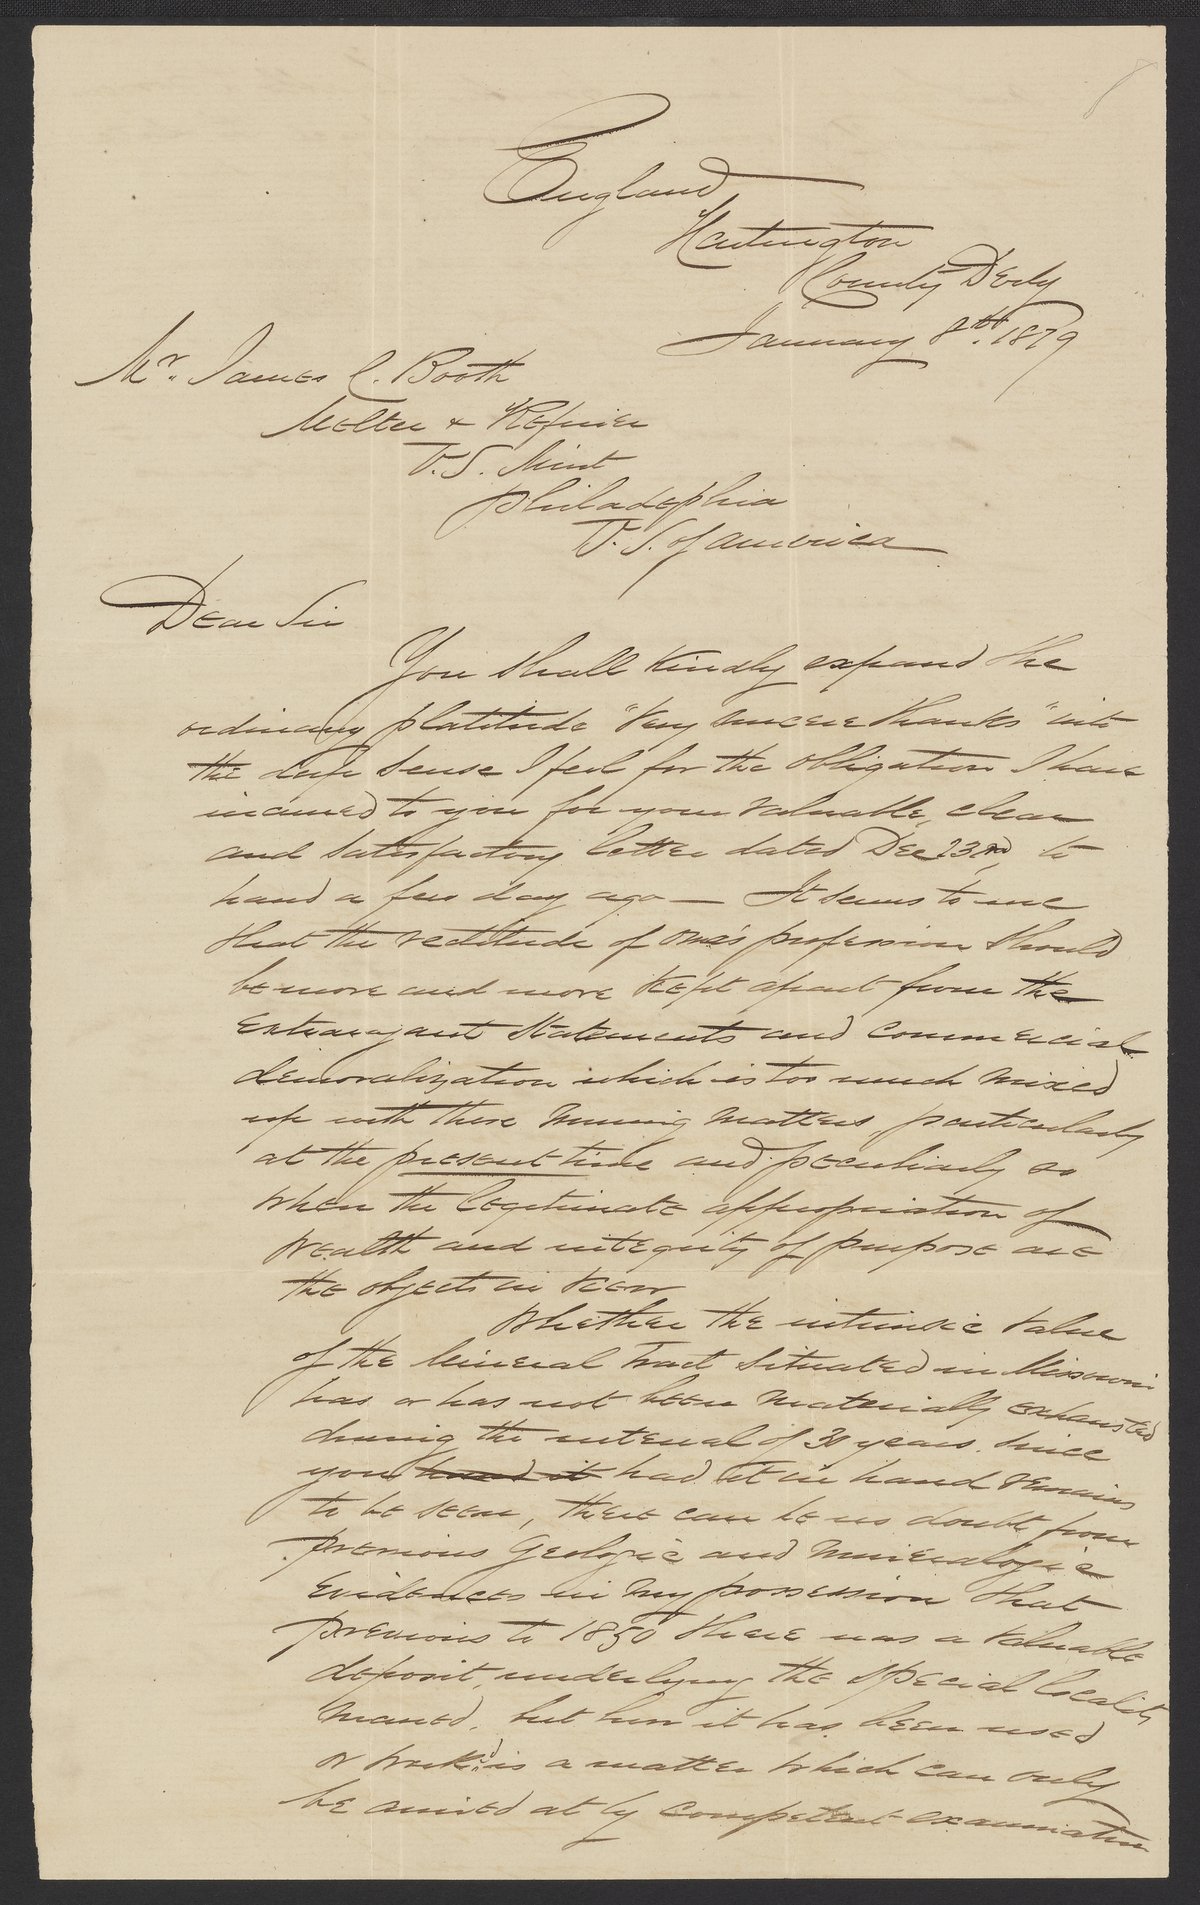 England
Hartington
County Derby
January 8th. 1879
Mr. James C. Booth
Melter & Refiner
U.S. Mint
Philadephia
U.S. of America
Dear Sir
You shall kindly expand the
ordinary platitude "Very sincere thanks" into
the deep sense I feel for the obligation I have
incurred to you for your valuable, clear
and satisfactory letter dated Dec 23rd, to
hand a few day ago — It seems to me
that the rectitude of one's profession should
be more and more kept apart from the
extravagant statements and commercial
demoralization which is too much mixed
up with these mining matters, particularly
at the present time and peculiarly so
when the legitimate appropriation of
wealth and integrity of purpose are
the objects in view
Whether the intrinsic value
of the Mineral Tract situated in Missouri
has or has not been materially exhausted
during the interval of 30 years since
you hand it had it in hand remains
to be seen, there can be no doubt from
previous Geologic and mineralogic
evidences in my possession that
previous to 1850 there was a valuable
deposit, underlying the special locality
named, but how it has been used
or work'd is a matter which can only
be arrived at by competent examination